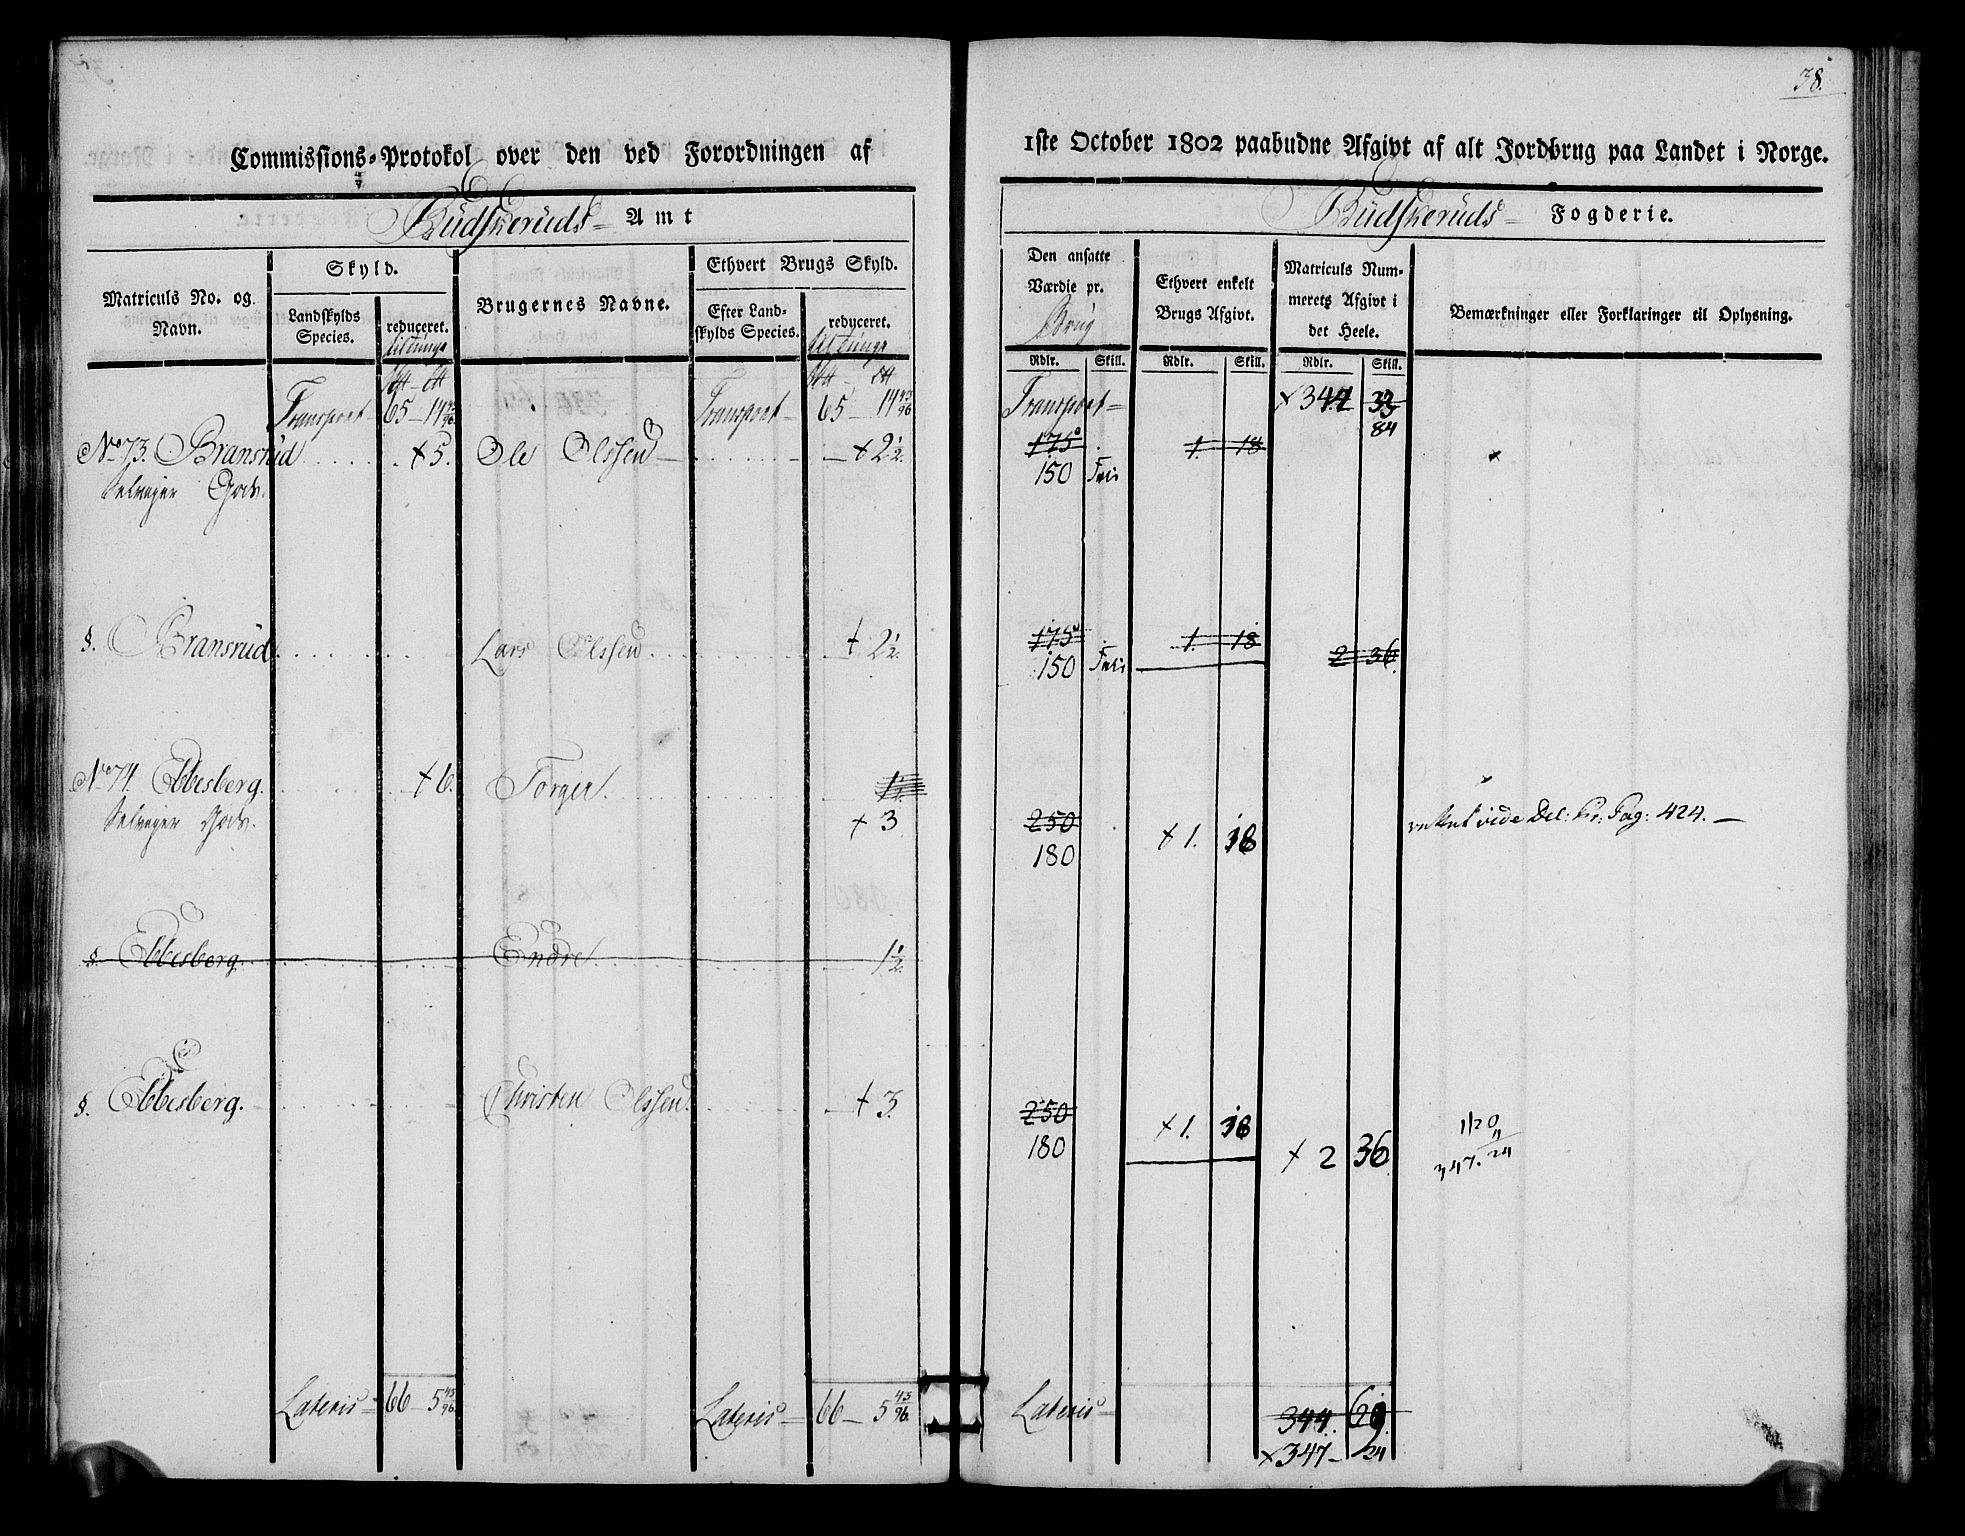 38.
Commissions-Protokol over den ved Forordningen af
1ste October 1802 paabudne Afgivt af alt Jordbrug paa Landet i Norge.
Budskeruds Amt
Budskeruds Fogderie.
Matriculs No. og Navn.
Skyld.
Landskylds Species.
reduceret.
Brugernes Navne.
Ethvert Brugs Skyld.
Efter Landskylds Species.
reduceret.
Den ansatte Værdie pr.
Brug
Ethvert enkelt Brugs Afgivt.
Matriculs Nummerets Afgivt i det Heele.
Bemærkninger eller Forklaringer til Oplysning.
Rdlr. Skill. Rdlr. Skill. Rdlr. Skill.
Transport 65 - 14 43/96 Transport 65 - 14 43/96 Transport 344 33
84
No 73. Bransrud + 5. Ole Olssen + 2 1/2. 175 1. 18
Selveier Gods. 150 Frie
§. Bransrud Lars Olssen + 2 1/2. 175 1. 18 2 36
150 Frie
No 74. Ebbesberg. + 6. Torger. 1 1/2.
Selveier Gods. + 3 250 + 1. 18 vide Del: Pr: Pag: 424.
180
§. Ebbesberg. Endre 1 1/2.
§. Ebbesberg. Christen Olssen. + 3. 250 + 1. 18
180 + 2 36
347. 24
Lateris 66 - 5 43/96. Lateris 66 - 5 43/96. Lateris 344.
+ 347 - 24